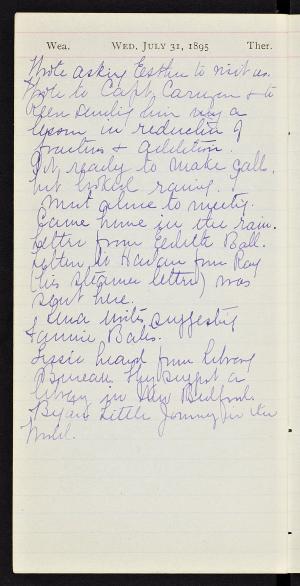 Wea. WED. JULY 31, 1895 Ther.
Wrote asking Esther to visit us.
Wrote to Capt. Carmen & to
Keen sending him a
lesson in reduction of
fractions & addition.
Got ready to make calls
but looked rainy.
Went alone to meeting.
Came home in the rain.
Letter from Edith Ball.
Letter to Havan from Ray
(his steamer letter) was
sent here.
Lena writes suggesting
Fannie Bates.
Lizzie heard from Library
Bureau. They suggest a
library in New Bedford.
Began Little Journey in the
World.